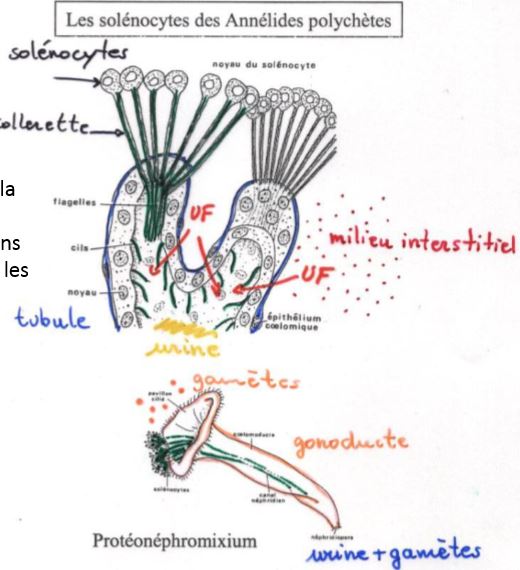 Les solénocytes des Annélides polychètes
solénocytes
noyau du solénocyte
collerette
la
flagelles
UF
ns
milieu interstitiel
cils
les
UF
noyau
tubule
épithélium
cœlomique
urine
gamètes
pavillon
cilié
cœlomoducte
gonoducte
solénocytes
canal
néphridien
néphridiopore
Protéonéphromixium
urine + gamètes